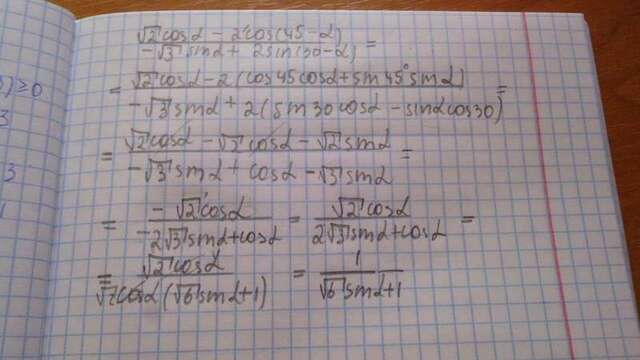 √2 cosα - 2cos(45-α)
-√3 sinα + 2sin(30-α) =
= √2 cosα - 2(cos45cosα + sin45° sinα)
-√3 sinα + 2(sin30cosα - sinαcos30) =
= √2 cosα - √2 cosα - √2 sinα
-√3 sinα + cosα - √3 sinα =
= -√2 cosα / -2√3 sinα + cosα = √2 cosα / 2√3 sinα + cosα =
= √2 cosα / √2 cosα (√6 sinα + 1) = 1 / √6 sinα + 1
) ≥ 0
3
3